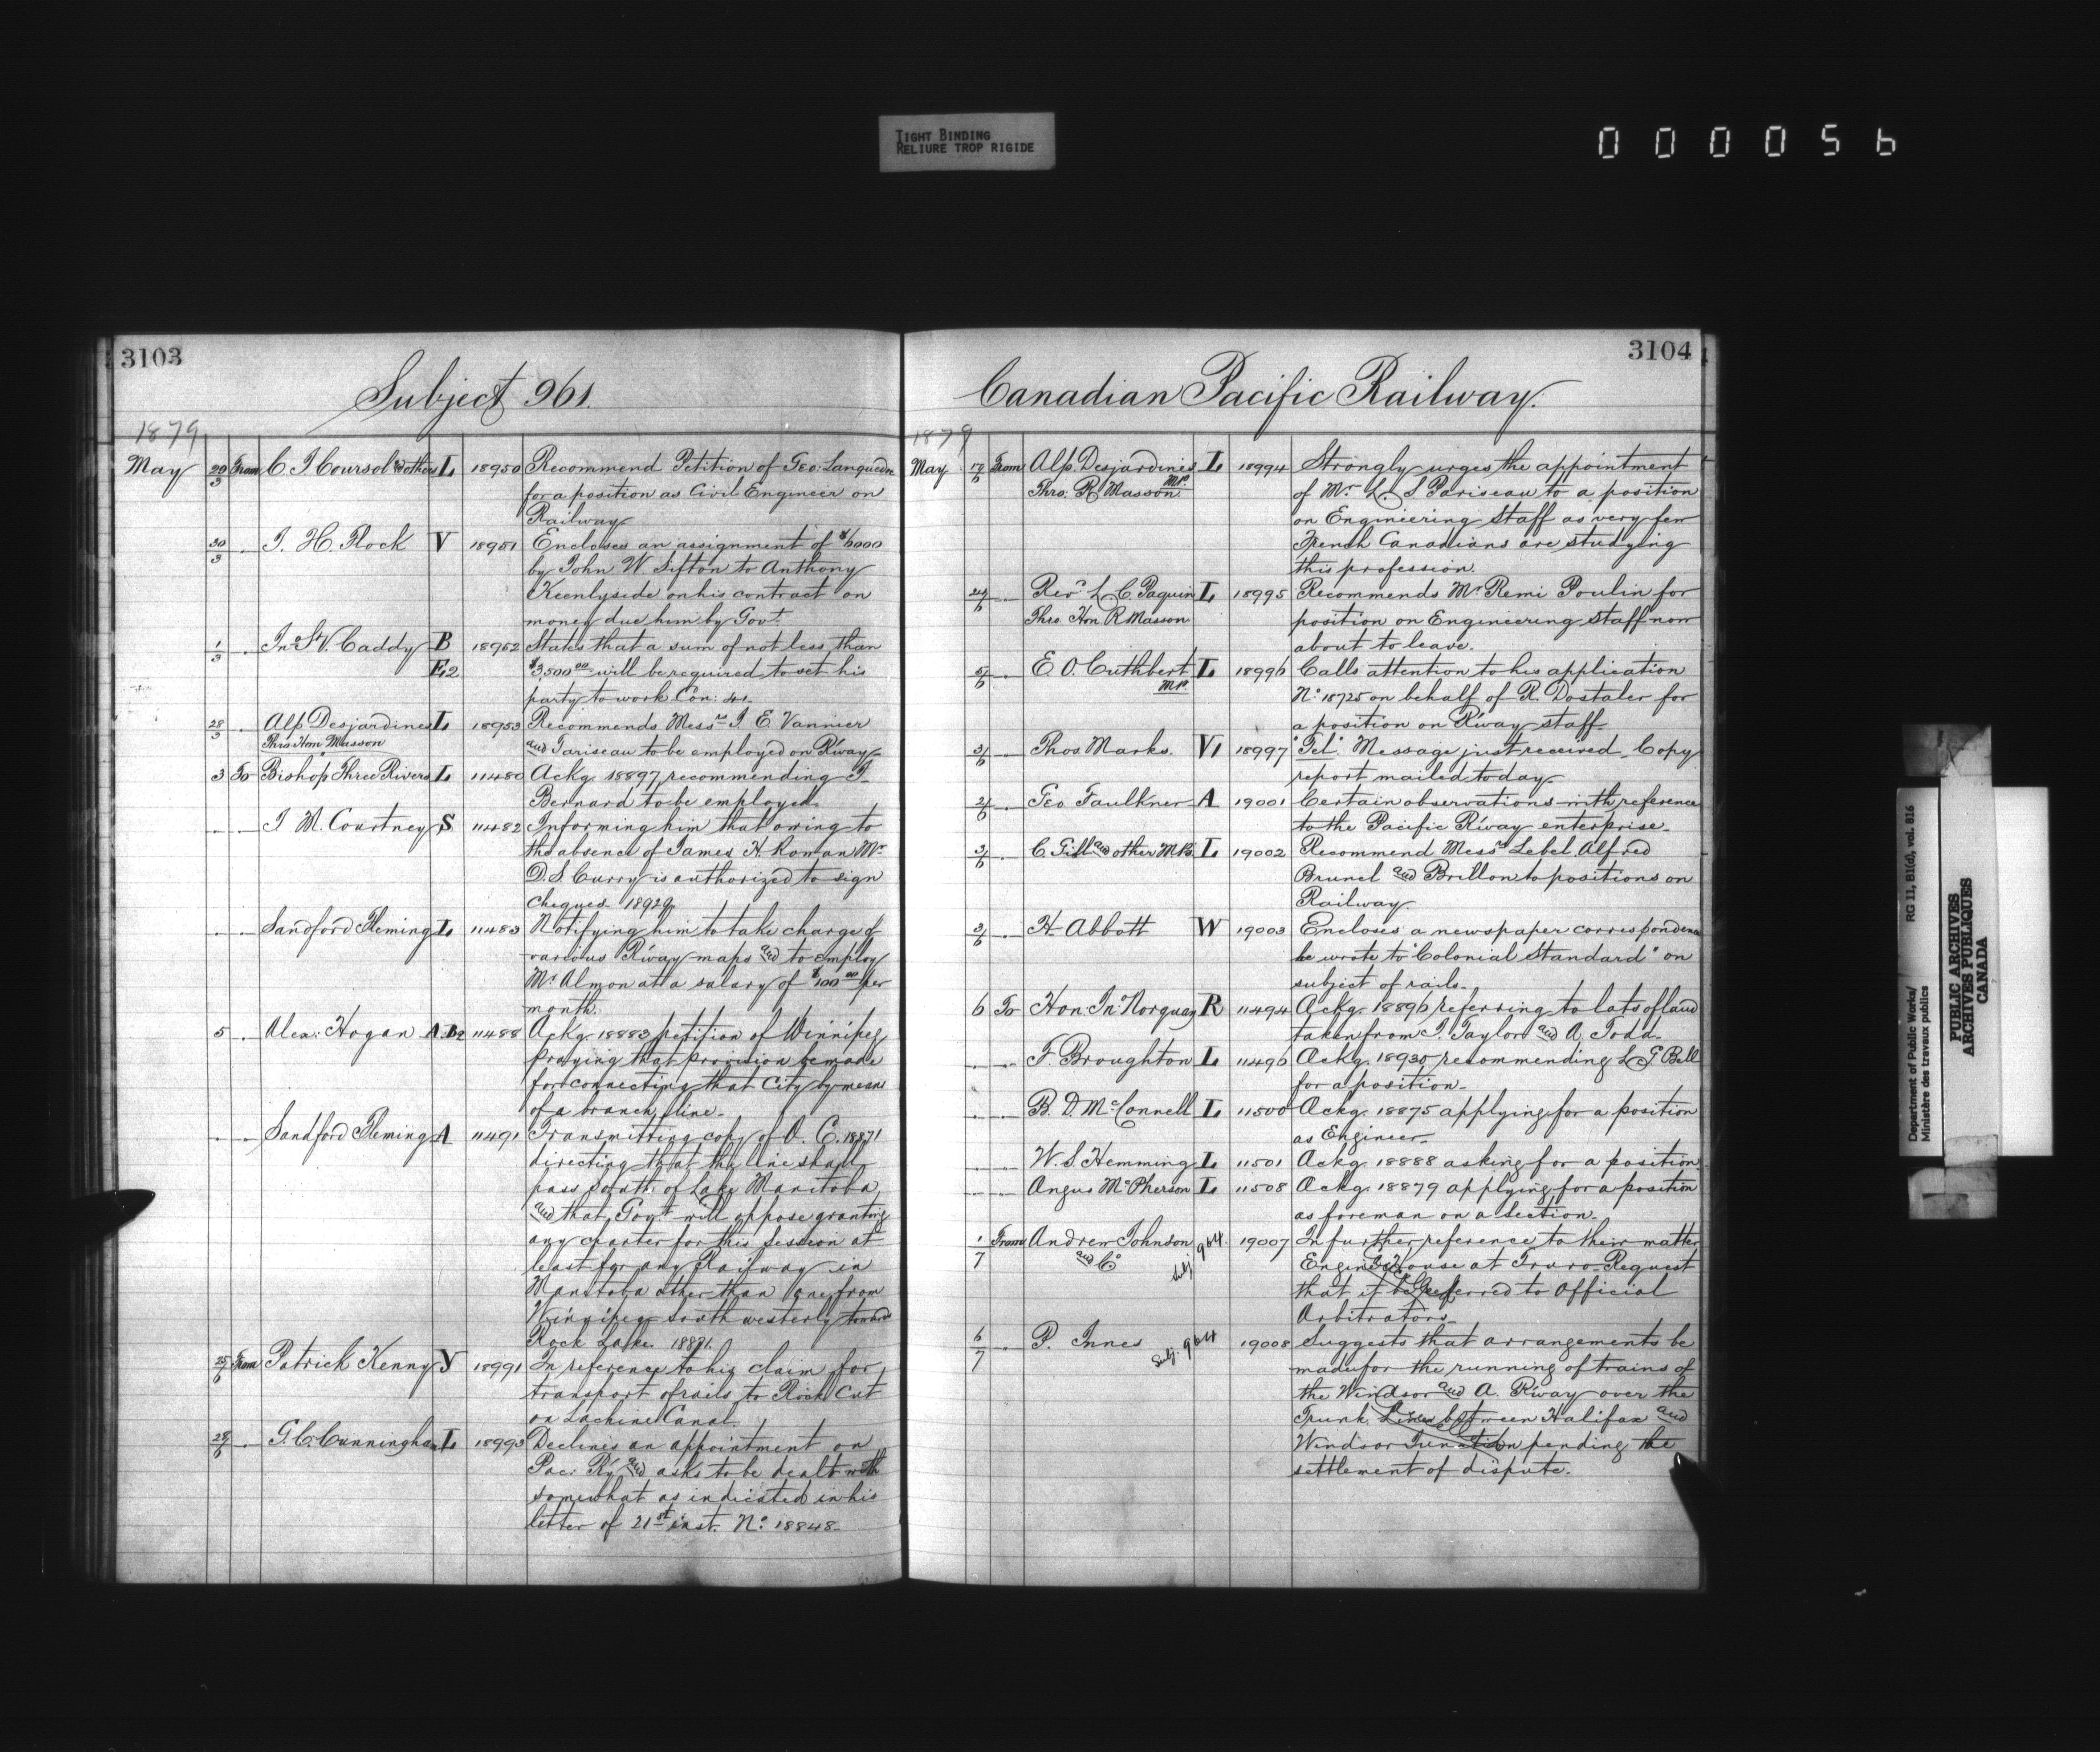 TIGHT BINDING
RELIURE TROP RIGIDE
0 0 0 0 5 6
3103
Subject 961.
1879
May 29/3 From C. J. Coursol and others L 18950 Recommend Petition of Geo: Languedoc
for a position as Civil Engineer on
Railway
30/3 " J. H. Flock V 18951 Encloses an assignment of $1000
by John W. Sifton to Anthony
Keenlyside on his contract on
money due him by Govt.
1/3 " Jno. S. V. Caddy B 18952 States that a sum of not less than
E2 $3,500.00 will be required to set his
party to work Con: 41.
28/3 " Alp. Desjardines L 18953 Recommends Messrs J. E. Vannier
Thro Hon. Masson and Pariseau to be employed on R'way
3 To Bishop Three Rivers L 11480 Ackg. 18897 recommending J.
Bernard to be employed.
" " J. M. Courtney S 11482 Informing him that owing to
the absence of James H. Rowan Mr.
D. S. Curry is authorized to sign
cheques. 18929.
" " Sandford Fleming L 11483 Notifying him to take charge of
various R'way maps and to employ
Mr. Almon at a salary of $100.00 per
month.
5 " Alex: Hogan A.B2 11488 Ackg. 18883 petition of Winnipeg
praying that provision be made
for connecting that City by means
of a branch line.
" " Sandford Fleming A 11491 Transmitting copy of O. C. 18871
directing that the line shall
pass south of Lake Manitoba
and that Govt. will oppose granting
any charter for this session at
least for any Railway in
Manitoba other than one from
Winnipeg south westerly towards
Rock Lake. 18871.
25/6 From Patrick Kenny Y 18991 In reference to his claim for
transport of rails to Rock Cut
on Lachine Canal.
28/6 " G. C. Cunningham L 18993 Declines an appointment on
Pac: Ry. and asks to be dealt with
somewhat as indicated in his
letter of 21st inst. No. 18848.
3104
Canadian Pacific Railway.
1879
May 17/6 From Alp. Desjardines M.P. L 18994 Strongly urges the appointment
Thro. R. Masson of Mr. L. S. Pariseau to a position
on Engineering Staff as very few
French Canadians are studying
this profession.
24/6 " Revd. L. C. Paquin L 18995 Recommends Mr. Remi Poulin for
Thro. Hon. R. Masson position on Engineering Staff now
about to leave.
5/6 " E. O. Cuthbert M.P. L 18996 Calls attention to his application
No. 18725 on behalf of R. Dostaler for
a position on R'way staff.
3/6 " Thos. Marks. V1 18997 "Tel." Message just received. Copy
report mailed today.
2/6 " Geo. Faulkner A 19001 Certain observations with reference
to the Pacific R'way enterprise.
3/6 " C. Gill and other M.P.s L 19002 Recommend Messrs. Lebel, Alfred
Brunel and Brillon to positions on
Railway.
3/6 " H. Abbott W 19003 Encloses a newspaper correspondence
he wrote to "Colonial Standard" on
subject of rails.
6 To Hon. Jno. Norquay R 11494 Ackg. 18896 referring to lots of land
taken from J. Taylor and A. Todd.
" " F. Broughton L 11496 Ackg. 18930 recommending L. G. Bell
for a position.
" " B. D. McConnell L 11500 Ackg. 18875 applying for a position
as Engineer.
" " W. S. Hemming L 11501 Ackg. 18888 asking for a position.
" " Angus McPherson L 11508 Ackg. 18879 applying for a position
as foreman on a section.
1/7 From Andrew Johnson Subj 964. 19007 In further reference to their matter
and Co. Engine House at Truro. Request
that it be referred to Official
Arbitrators.
6/7 " P. Innes Subj. 964 19008 Suggests that arrangements be
made for the running of trains of
the Windsor and A. R'way over the
Trunk Line between Halifax and
Windsor Junction pending the
settlement of dispute.
Department of Public Works/ RG 11, B1(d), vol. 816
Ministère des travaux publics
PUBLIC ARCHIVES
ARCHIVES PUBLIQUES
CANADA